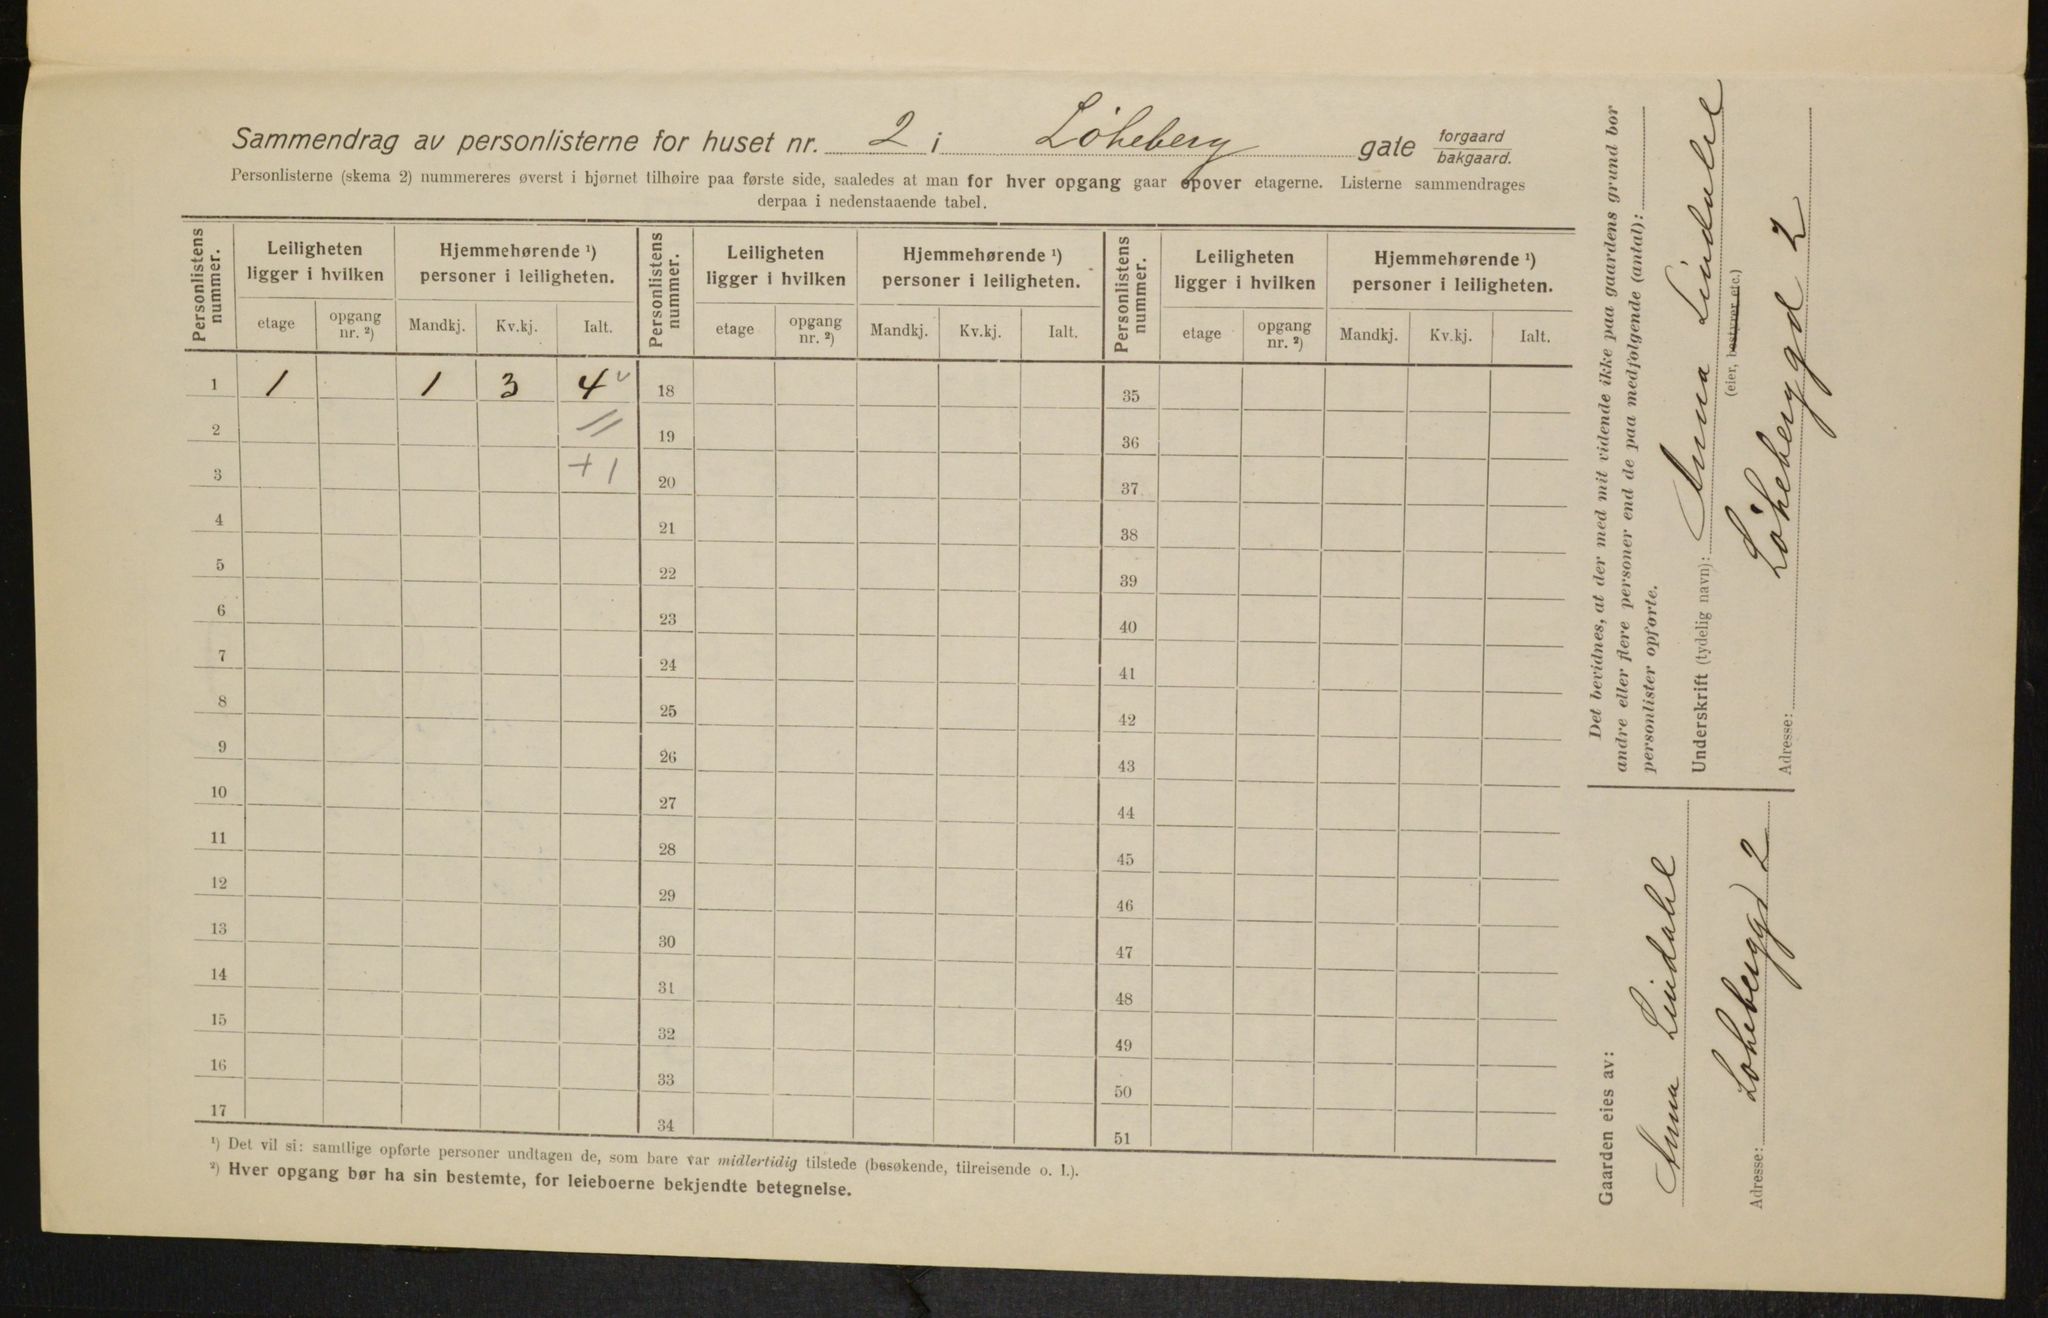 Sammendrag av personlisterne for huset nr. 2 i Løheberg gate forgaard bakgaard.
Personlisterne (skema 2) nummereres øverst i hjørnet tilhøire paa første side, saaledes at man for hver opgang gaar opover etagerne. Listerne sammendrages
derpaa i nedenstaaende tabel.
Personlistens nummer. Leiligheten ligger i hvilken Hjemmehørende ¹) personer i leiligheten. Personlistens nummer. Leiligheten ligger i hvilken Hjemmehørende ¹) personer i leiligheten. Personlistens nummer. Leiligheten ligger i hvilken Hjemmehørende ¹) personer i leiligheten.
etage opgang nr. ²) Mandkj. Kv.kj. Ialt. etage opgang nr. ²) Mandkj. Kv.kj. Ialt. etage opgang nr. ²) Mandkj. Kv.kj. Ialt.
1 1 1 3 4 v 18 35
2 19 36
3 + 1 20 37
4 21 38
5 22 39
6 23 40
7 24 41
8 25 42
9 26 43
10 27 44
11 28 45
12 29 46
13 30 47
14 31 48
15 32 49
16 33 50
17 34 51
¹) Det vil si: samtlige opførte personer undtagen de, som bare var midlertidig tilstede (besøkende, tilreisende o. l.).
²) Hver opgang bør ha sin bestemte, for leieboerne bekjendte betegnelse.
Det bevidnes, at der med mit vidende ikke paa gaardens grund bor
andre eller flere personer end de paa medfølgende (antal):
personlister opførte.
Underskrift (tydelig navn): Anna Lindahl
(eier, bestyrer etc.)
Løheberggd 2
Adresse:
Gaarden eies av:
Anna Lindahl
Adresse: Løheberggd 2